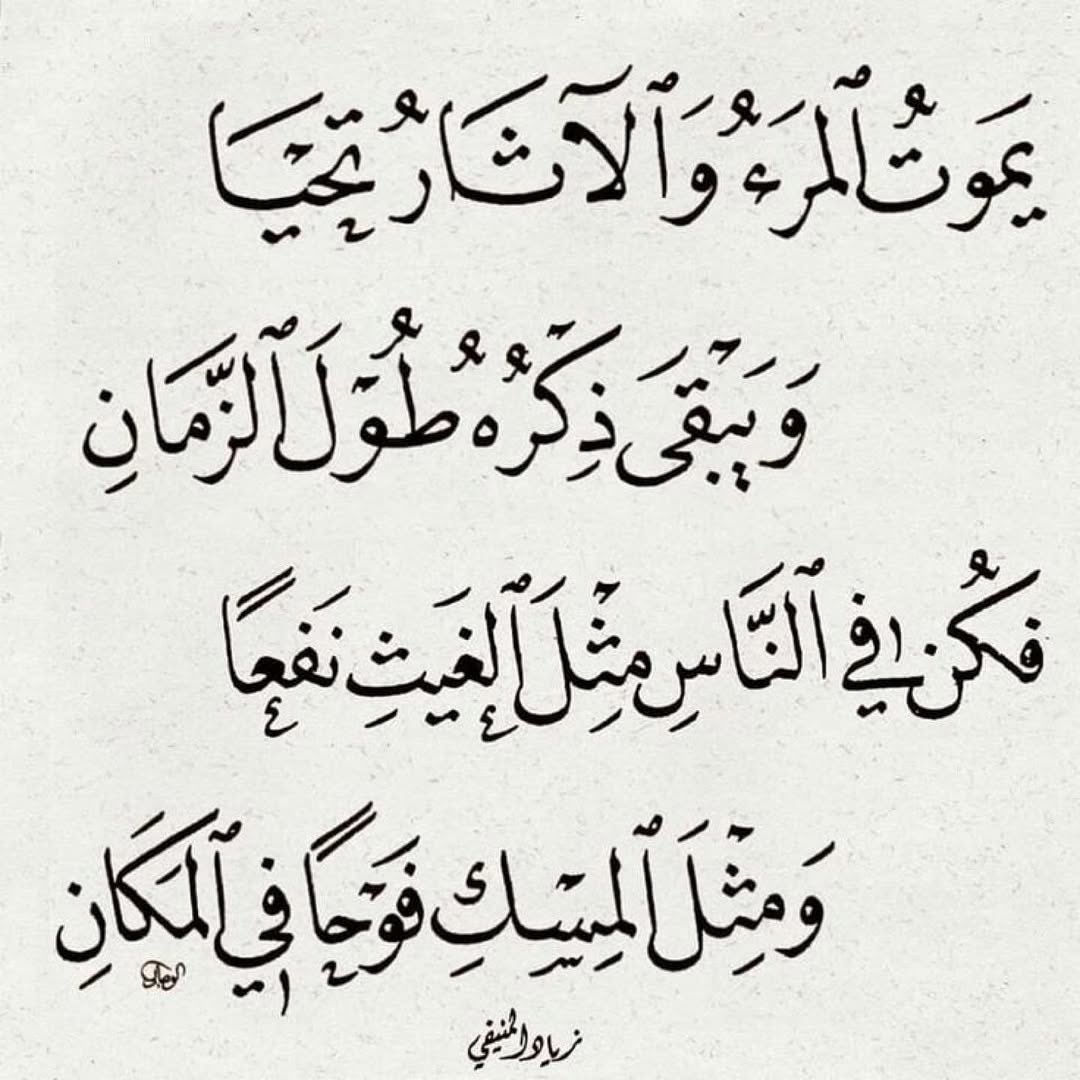 يَمَوتُ ٱلمرَءُ وَٱلآثَارُ تَحْيَا
وَيَبْقَى ذِكْرُهُ طُوْلَ ٱلزَّمَانِ
فَكُن في ٱلنَّاسِ مِثْلَ ٱلغَيثِ نَفعًا
وَمِثْلَ ٱلمِسْكِ فَوْحًا فِي ٱلمَكَانِ
زياد المنيفي